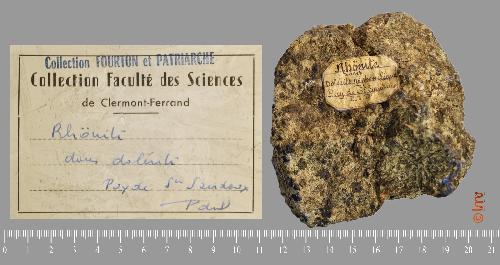 Collection FOURTON et PATRIARCHE
Collection Faculté des Sciences
de Clermont-Ferrand
Rhöniti
dans doleriti
Puy de St Sandoux
P. de D.
Rhönite
dans
0 1 2 3 4 5 6 7 8 9 10 11 12 13 14 15 16 17 18 19 20 21